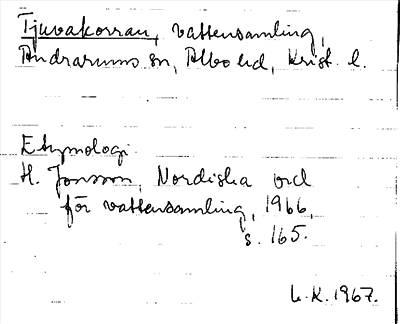 Tjuvakorran, vattensamling,
Andrarums sn, Albo hd, Krist. l.
Etymologi
H. Jonsson, Nordiska ord
för vattensamling, 1966,
s. 165.
L.K. 1967.